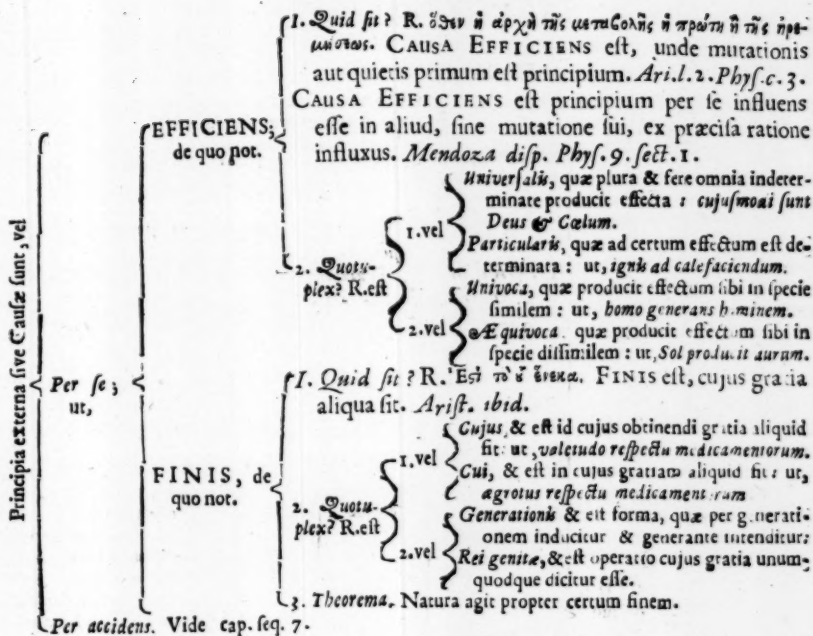 Principia externa sive Causæ sunt, vel
Per se; ut,
EFFICIENS; de quo not.
1. Quid sit? R. ὅθεν ἡ ἀρχὴ τῆς μεταβολῆς ἡ πρώτη ἢ τῆς ἠρε-
μήσεως. CAUSA EFFICIENS est, unde mutationis
aut quietis primum est principium. Ari. l. 2. Phys. c. 3.
CAUSA EFFICIENS est principium per se influens
esse in aliud, sine mutatione sui, ex præcisa ratione
influxus. Mendoza disp. Phys. 9. sect. 1.
2. Quotu-
plex? R. est
1. vel
Universalis, quæ plura & fere omnia indeter-
minate producit effecta : cujusmodi sunt
Deus & Cœlum.
Particularis, quæ ad certum effectum est de-
terminata : ut, ignis ad calefaciendum.
2. vel
Univoca, quæ producit effectum sibi in specie
similem : ut, homo generans hominem.
Æquivoca quæ producit effectum sibi in
specie dissimilem : ut, Sol producit aurum.
FINIS, de
quo not.
1. Quid sit? R. Ἐστὶ τὸ οὗ ἕνεκα. FINIS est, cujus gratia
aliqua sit. Arist. ibid.
2. Quotu-
plex? R. est
1. vel
Cujus, & est id cujus obtinendi gratia aliquid
fit: ut, valetudo respectu medicamentorum.
Cui, & est in cujus gratiam aliquid fit: ut,
ægrotus respectu medicamentorum
2. vel
Generationis & est forma, quæ per generati-
onem inducitur & generante intenditur:
Rei genitæ, & est operatio cujus gratia unum-
quodque dicitur esse.
3. Theorema. Natura agit propter certum finem.
Per accidens. Vide cap. seq. 7.